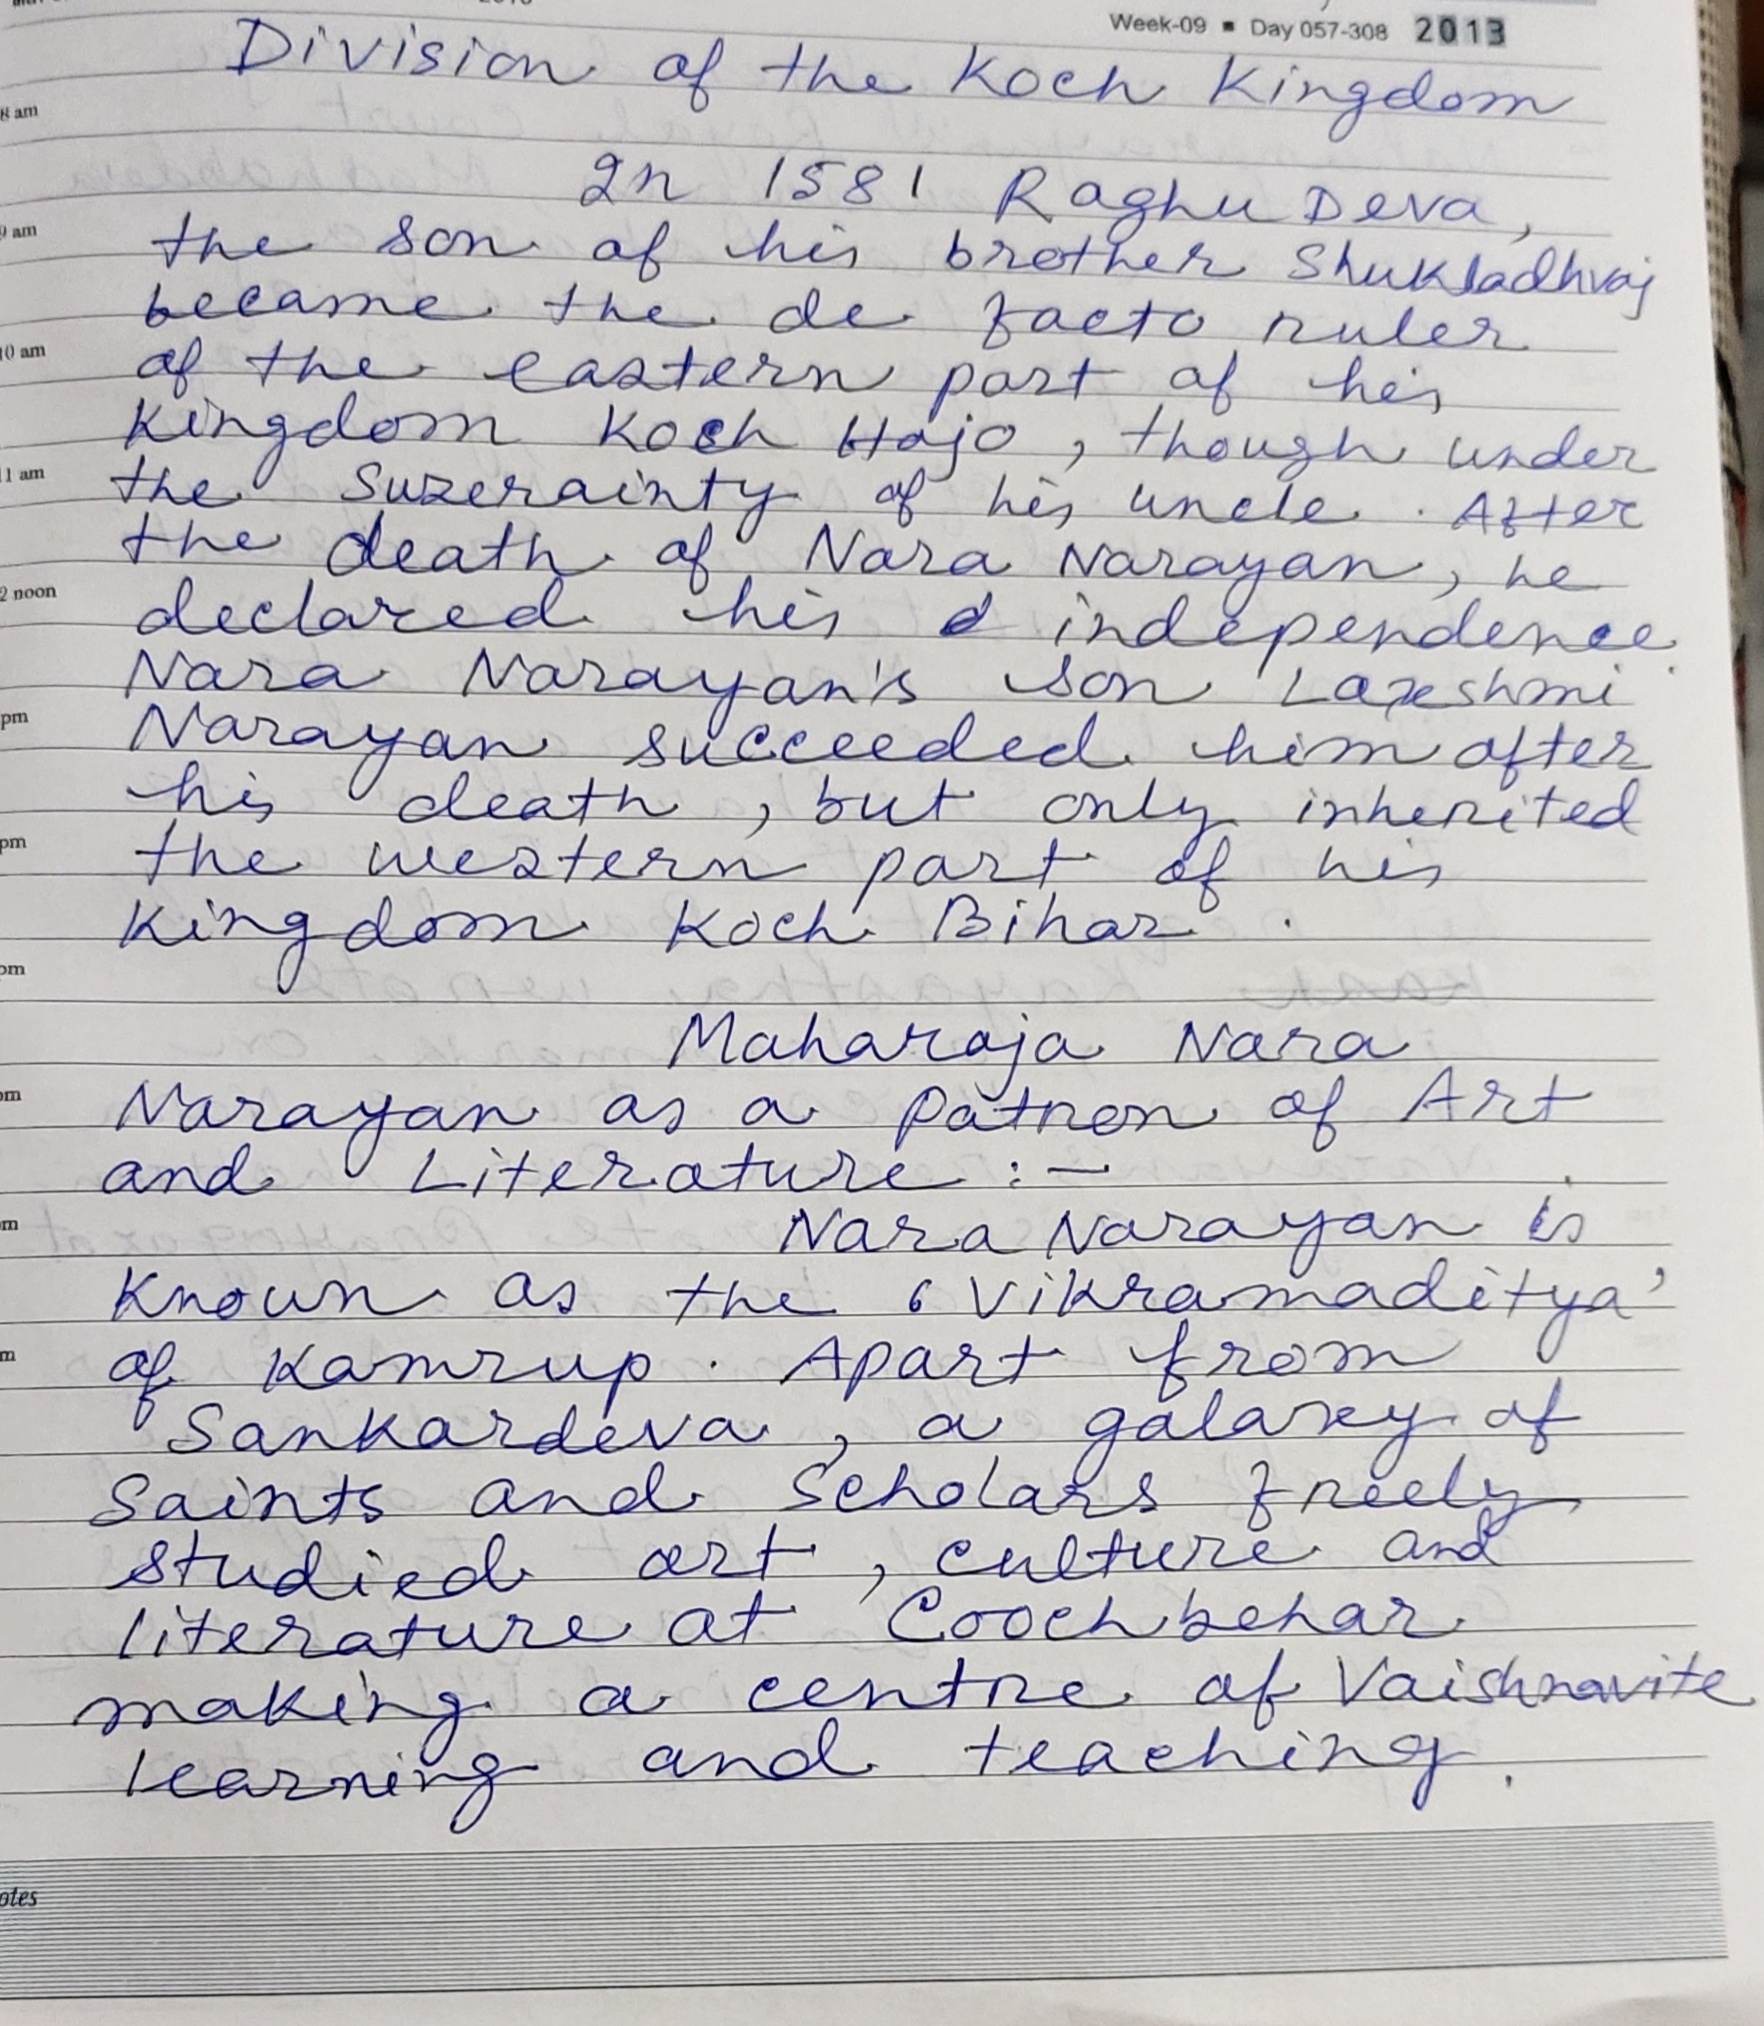 Week-09 ▪ Day 057-308 2013
Division of the Koch Kingdom
8 am
In 1581 Raghu Deva,
9 am
the son of his brother Shukladhvaj
became the de facto ruler
10 am
of the eastern part of his
Kingdom Koch Hajo, though under
11 am
the suzerainty of his uncle. After
the death of Nara Narayan, he
12 noon
declared his independence.
Nara Narayan's son Laxshmi
pm
Narayan succeeded him after
his death, but only inherited
pm
the western part of his
Kingdom Koch Bihar.
pm
Maharaja Nara
pm
Narayan as a Patron of Art
and Literature :-
Nara Narayan is
Known as the 'Vikramaditya'
of Kamrup. Apart from
Sankardeva, a galaxy of
Saints and Scholars freely
studied art, culture and
literature at Coochbehar
making a centre of Vaishnavite
learning and teaching.
otes